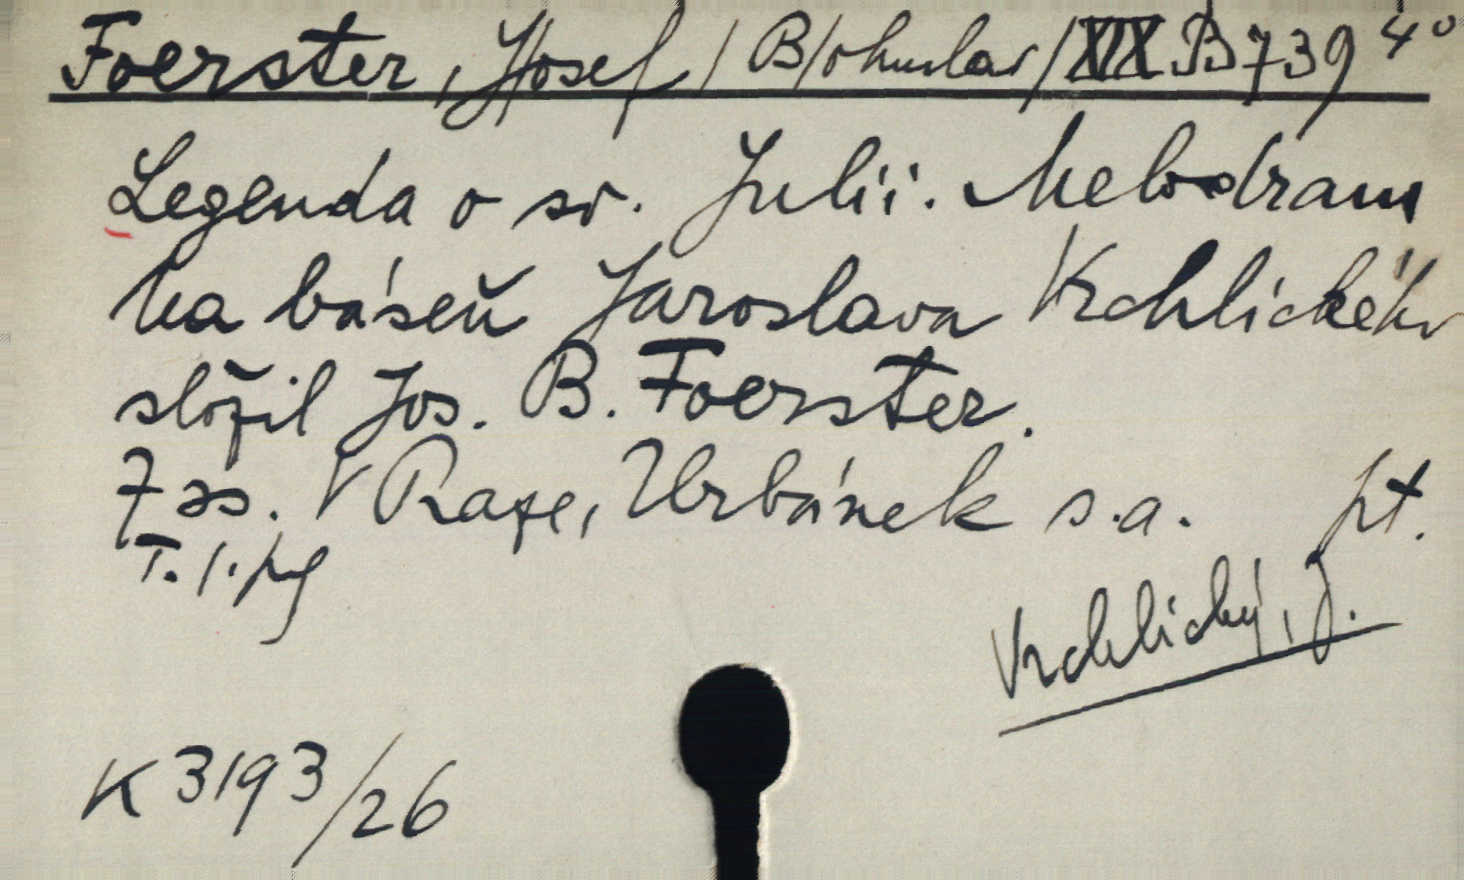 Foerster, J/osef/ B/ohuslav/ XIX B 739 4°
Legenda o sv. Julii. Melodram
na báseň Jaroslava Vrchlického
složil Jos. B. Foerster.
7 ss. V Praze, Urbánek s.a. pt.
T. 1. pg
Vrchlický, J.
K 3193/26